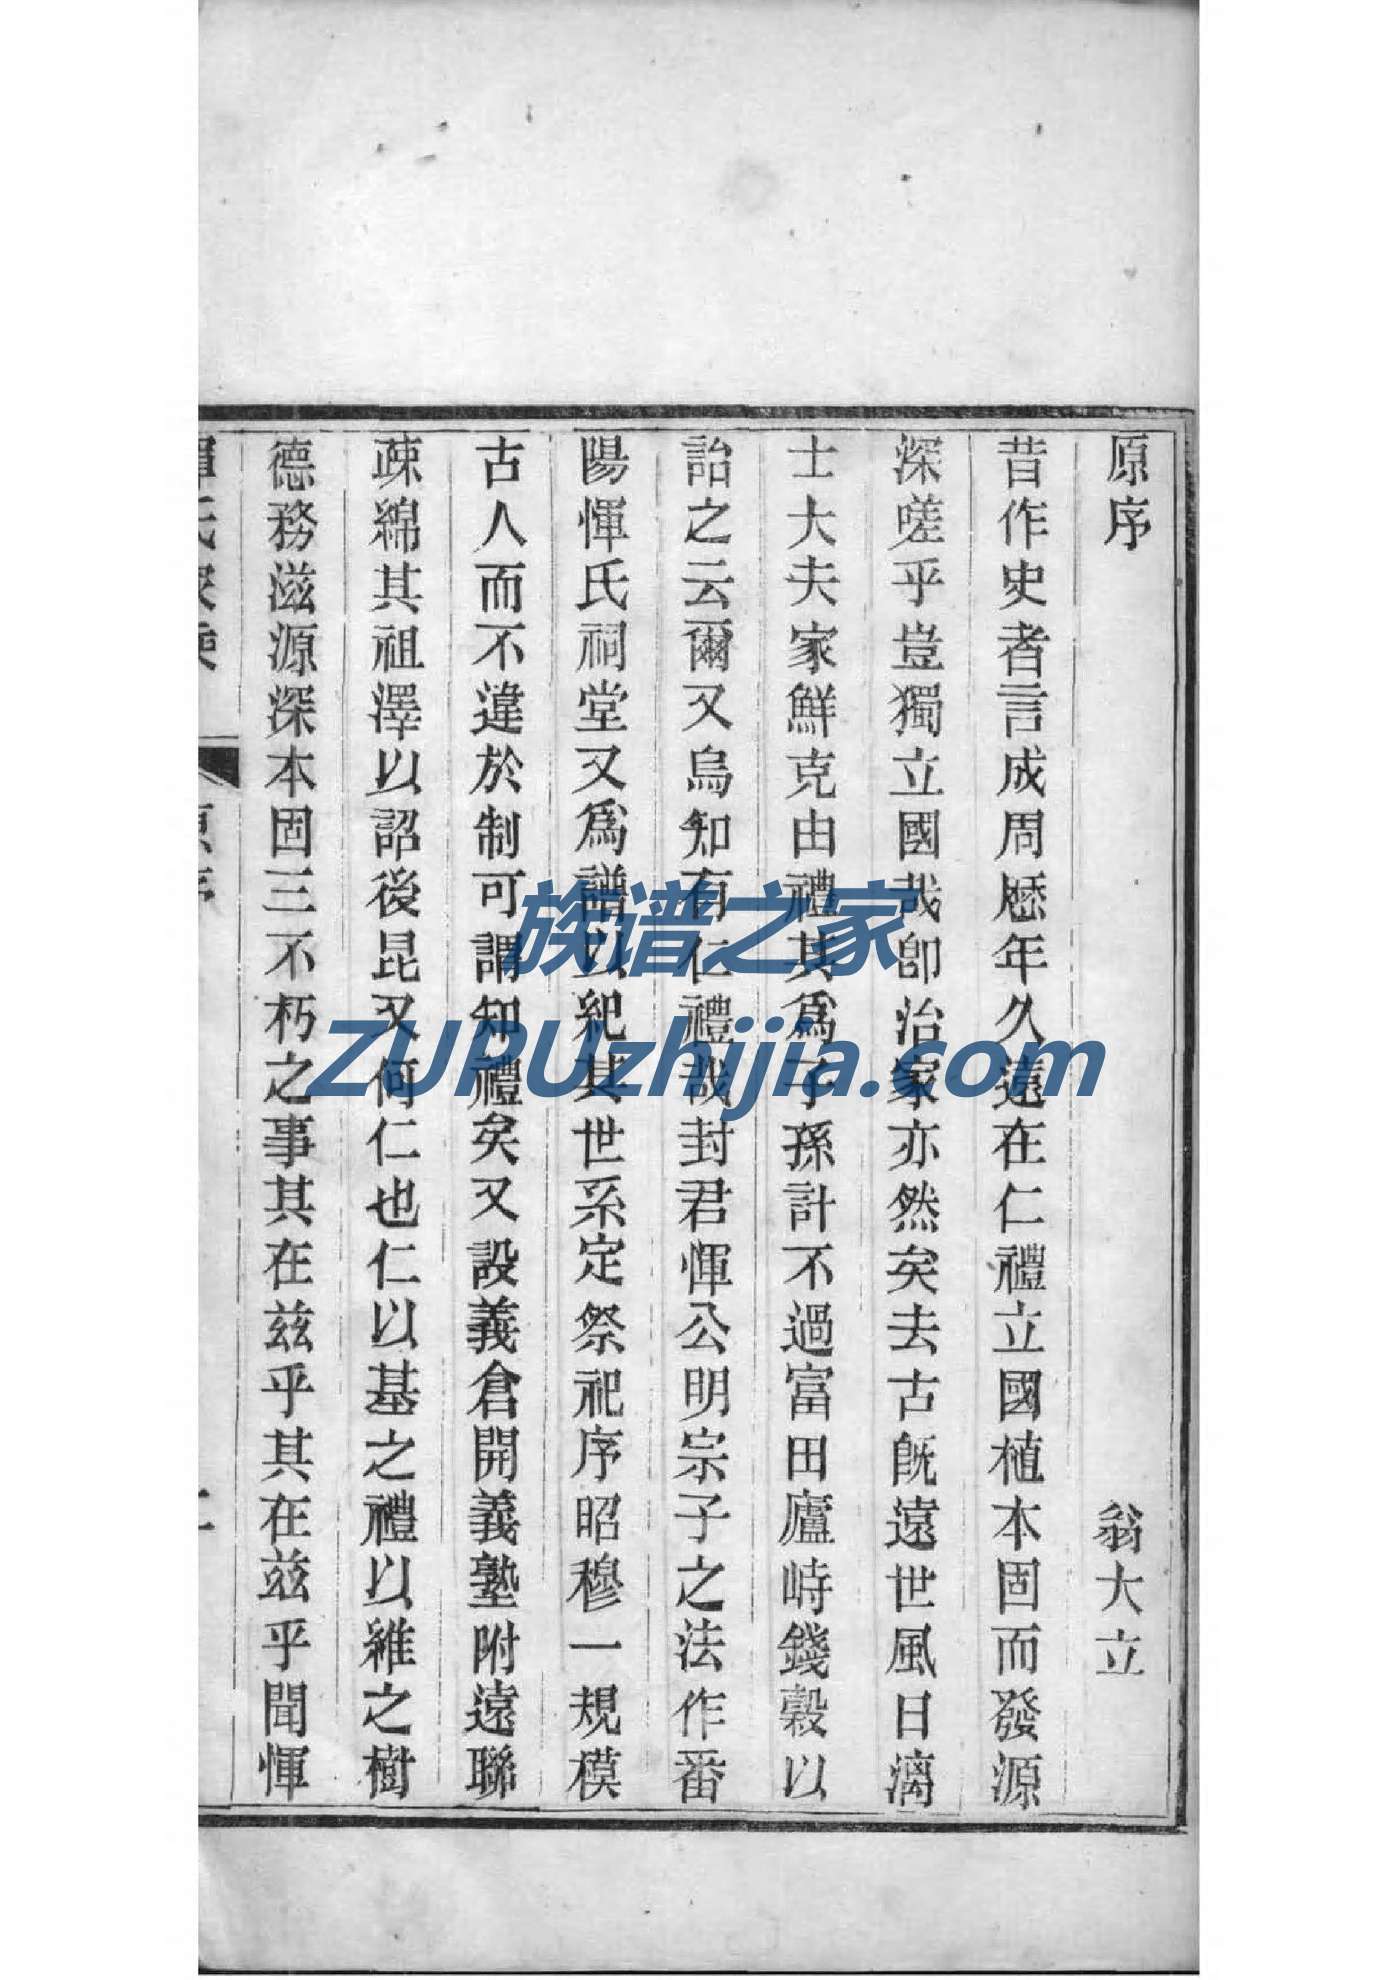 原序
翁大立
昔作史者言成周歷年久遠在仁禮立國植本固而發源
深嗟乎豈獨立國哉卽治家亦然矣去古旣遠世風日漓
士大夫家鮮克由禮其爲子孫計不過富田廬峙錢穀以
詒之云爾又烏知有仁禮哉封君惲公明宗子之法作番
陽惲氏祠堂又爲譜以紀其世系定祭祀序昭穆一規模
古人而不違於制可謂知禮矣又設義倉開義塾附遠聯
疎綿其祖澤以詔後昆又何仁也仁以基之禮以維之樹
德務滋源深本固三不朽之事其在兹乎其在兹乎聞惲
族谱之家
ZUPUzhijia.com